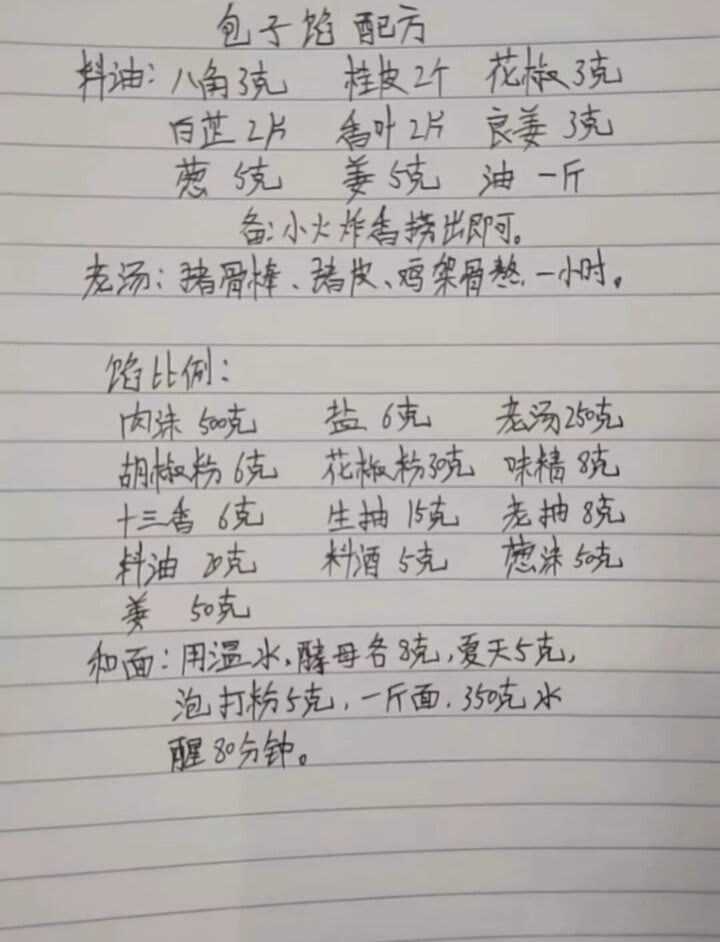 包子馅 配方
料油：八角3克 桂皮2个 花椒3克
白芷2片 香叶2片 良姜3克
葱5克 姜5克 油一斤
备：小火炸香捞出即可。
老汤：猪骨棒、猪皮、鸡架骨熬一小时。
馅比例：
肉沫500克 盐6克 老汤250克
胡椒粉6克 花椒粉30克 味精8克
十三香6克 生抽15克 老抽8克
料油20克 料酒5克 葱沫50克
姜 50克
和面：用温水，酵母各8克，夏天5克，
泡打粉5克，一斤面，350克水
醒80分钟。